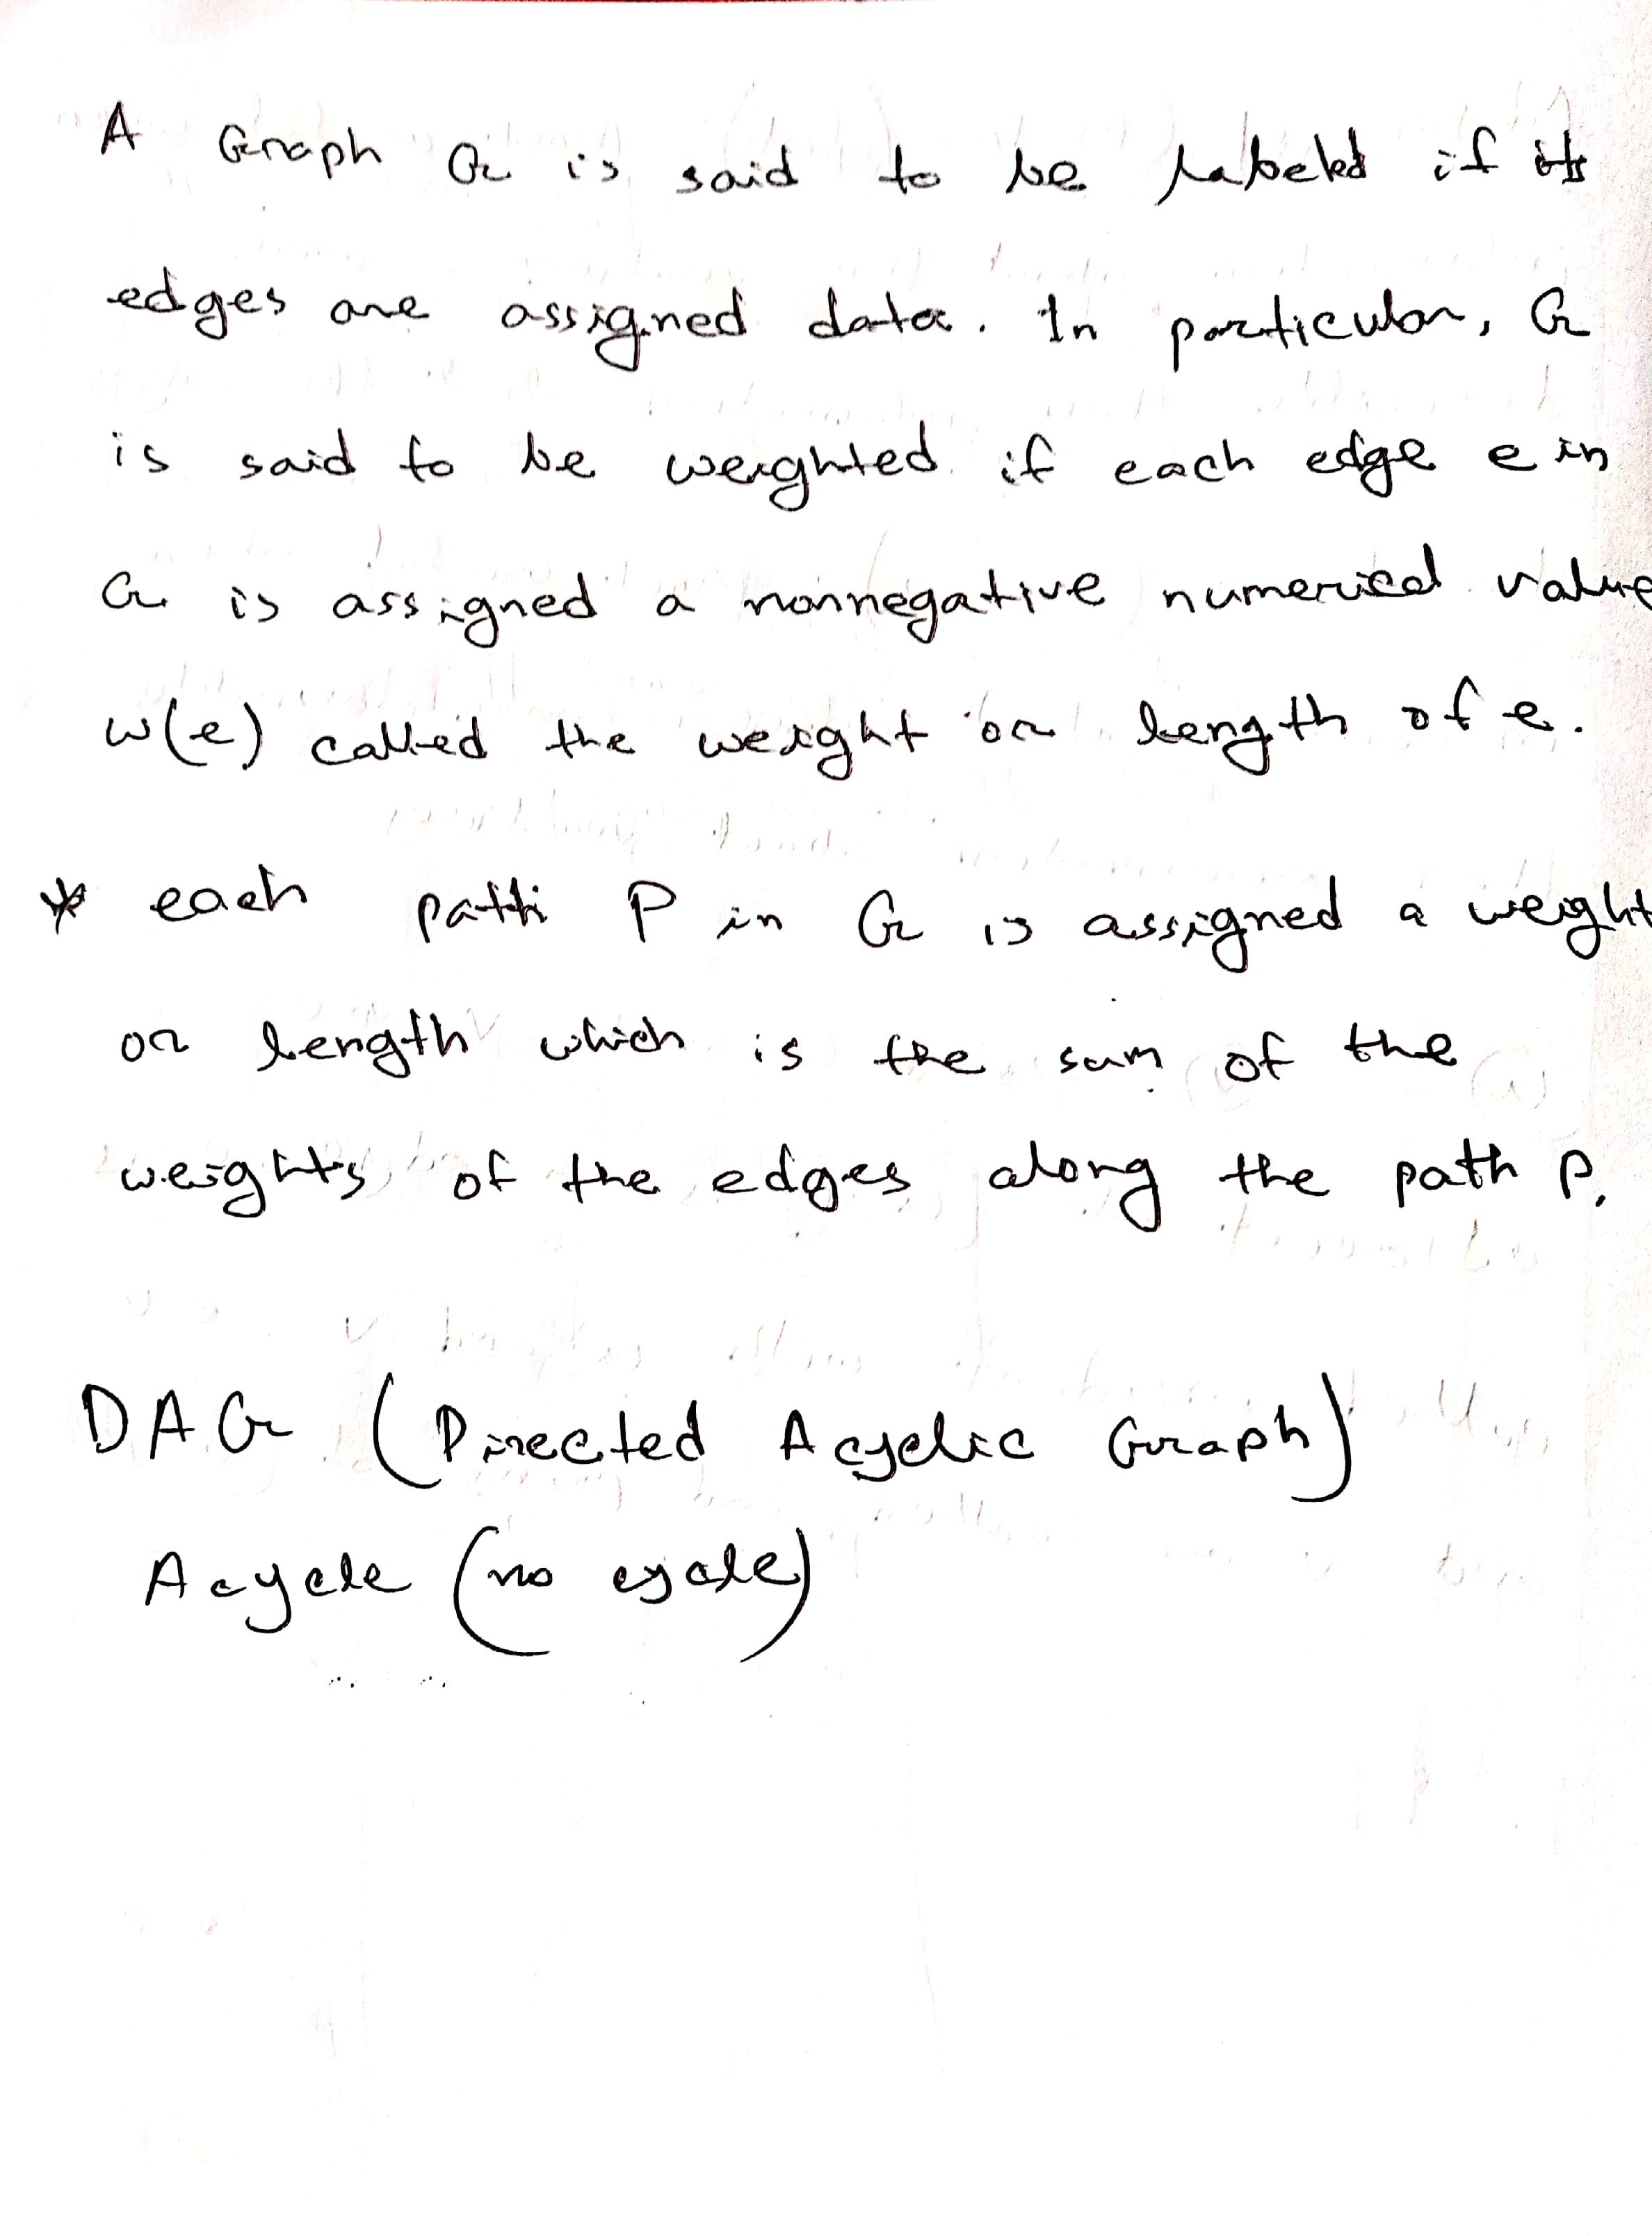 A Graph G is said to be labeled if its
edges are assigned data. In particular, G
is said to be weighted if each edge e in
G is assigned a nonnegative numerical value
w(e) called the weight or length of e.
* each path P in G is assigned a weight
or length which is the sum of the
weights of the edges along the path P.
DAG (Directed Acyclic Graph)
Acycle (no cycle)